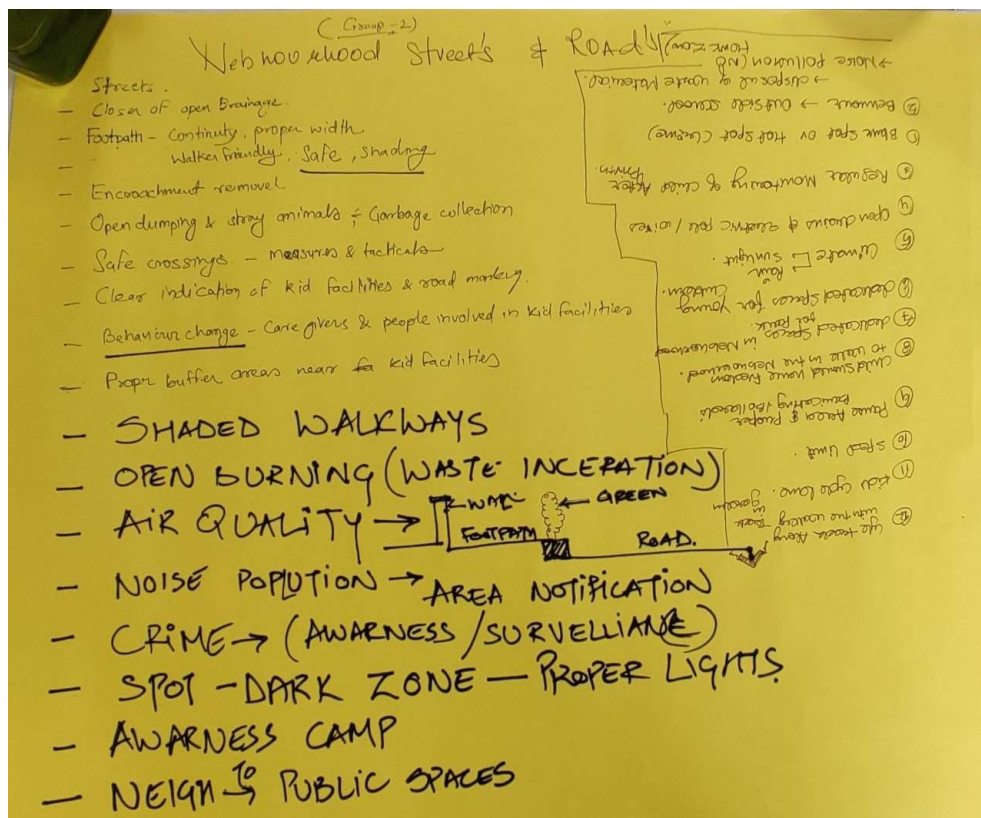 (Group-2)
Nebhourhood Street's & ROAD's
Streets.
- Closer of open Drainage.
- Footpath - Continuty, proper width
- Walker friendly. Safe, shading
- Encroachment removel
- Open dumping & stray animals ÷ Garbage collection
- Safe crossings - measures & tacticals
- Clear indication of kid facilities & road marking.
- Behaviour change - Care givers & people involved in kid facilities
- Propr buffer areas near kid facilities
- SHADED WALKWAYS
- OPEN BURNING (WASTE INCERATION)
- AIR QUALITY →
← WALL
← GREEN
FOOTPATH
ROAD.
- NOISE POPLUTION → AREA NOTIFICATION
- CRIME → (AWARNESS / SURVELLIANCE)
- SPOT - DARK ZONE - PROPER LIGHTS.
- AWARNESS CAMP
- NEIGH TO → PUBLIC SPACES
① Blank Spot or Hot Spot
② Behaviour → Outside School.
→ disposal of waste Material.
→ Noise Pollution (No
Honk Zone)
③ Regular Monitoring of child After
④ Open drains & electric pole / wires
⑤ Climate Rain
Sunlight.
⑥ dedicated Spaces for young
⑦ dedicated Spaces in Nebhourhood
for Park.
⑧ child should have freedom
to walk in the Nebhourhood.
⑨ Pause Area & proper
Barricating / Bollards
⑩ Speed Limit.
⑪ Kids Cycle lane.
⑫ along
with the walking
Track
in
Garden